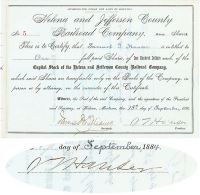 Helena and Jefferson County
Railroad Company,
No 5
This is to Certify, that Samuel T. Hauser is entitled to
One full paid Share, of One Hundred Dollars each, of the
Capital Stock of the Helena and Jefferson County Railroad Company,
which said Shares are transferable only on the Books of the Company, in
person or by attorney, on the surrender of this Certificate.
Witness, the Seal of the said Company, and the signatures of the President
and Secretary, at Helena, Montana, the 18th day of September, 188
day of September 1884.